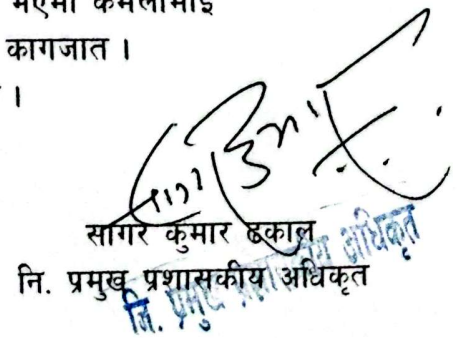 भएमा कमलामाई
कागजात ।
।
सागर कुमार ढकाल
नि. प्रमुख प्रशासकीय अधिकृत
नि. प्रमुख प्रशासकीय अधिकृत